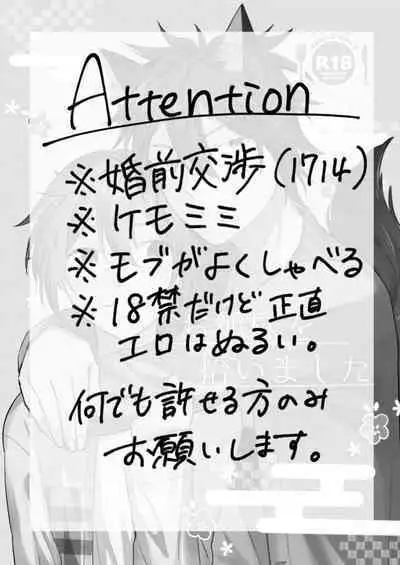 R18
Attention
※婚前交渉(1714)
※ケモミミ
※モブがよくしゃべる
※18禁だけど正直
エロはぬるい。
拾いました
何でも許せる方のみ
お願いします。